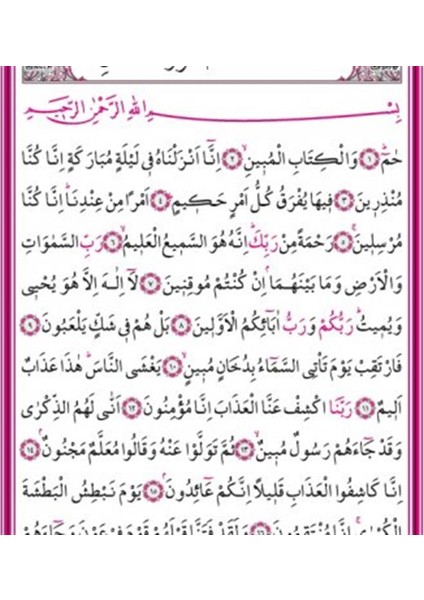 بِسْــــمِ اللهِ الرَّحْمٰنِ الرَّحٖيمِ
حٰمٓ ﴿١﴾ وَالْكِتَابِ الْمُبٖينِۙ ﴿٢﴾ اِنَّٓا اَنْزَلْنَاهُ فٖي لَيْلَةٍ مُبَارَكَةٍ اِنَّا كُنَّا
مُنْذِرٖينَ ﴿٣﴾ فٖيهَا يُفْرَقُ كُلُّ اَمْرٍ حَكٖيمٍۙ ﴿٤﴾ اَمْرًا مِنْ عِنْدِنَاۜ اِنَّا كُنَّا
مُرْسِلٖينَۚ ﴿٥﴾ رَحْمَةً مِنْ رَبِّكَۜ اِنَّهُ هُوَ السَّمٖيعُ الْعَلٖيمُۙ ﴿٦﴾ رَبِّ السَّمٰوَاتِ
وَالْاَرْضِ وَمَا بَيْنَهُمَاۢ اِنْ كُنْتُمْ مُوقِنٖينَ ﴿٧﴾ لَٓا اِلٰهَ اِلَّا هُوَ يُحْيٖي
وَيُمٖيتُۜ رَبُّكُمْ وَرَبُّ اٰبَٓائِكُمُ الْاَوَّلٖينَ ﴿٨﴾ بَلْ هُمْ فٖي شَكٍّ يَلْعَبُونَ ﴿٩﴾
فَارْتَقِبْ يَوْمَ تَاْتِي السَّمَٓاءُ بِدُخَانٍ مُبٖينٍۙ ﴿١٠﴾ يَغْشَى النَّاسَۜ هٰذَا عَذَابٌ
اَلٖيمٌ ﴿١١﴾ رَبَّنَا اكْشِفْ عَنَّا الْعَذَابَ اِنَّا مُؤْمِنُونَ ﴿١٢﴾ اَنّٰى لَهُمُ الذِّكْرٰى
وَقَدْ جَٓاءَهُمْ رَسُولٌ مُبٖينٌۙ ﴿١٣﴾ ثُمَّ تَوَلَّوْا عَنْهُ وَقَالُوا مُعَلَّمٌ مَجْنُونٌۢ ﴿١٤﴾
اِنَّا كَاشِفُوا الْعَذَابِ قَلٖيلًا اِنَّكُمْ عَٓائِدُونَۢ ﴿١٥﴾ يَوْمَ نَبْطِشُ الْبَطْشَةَ
الْكُبْرٰىۚ اِنَّا مُنْتَقِمُونَ ﴿١٦﴾ وَلَقَدْ فَتَنَّا قَبْلَهُمْ قَوْمَ فِرْعَوْنَ وَجَٓاءَهُمْ